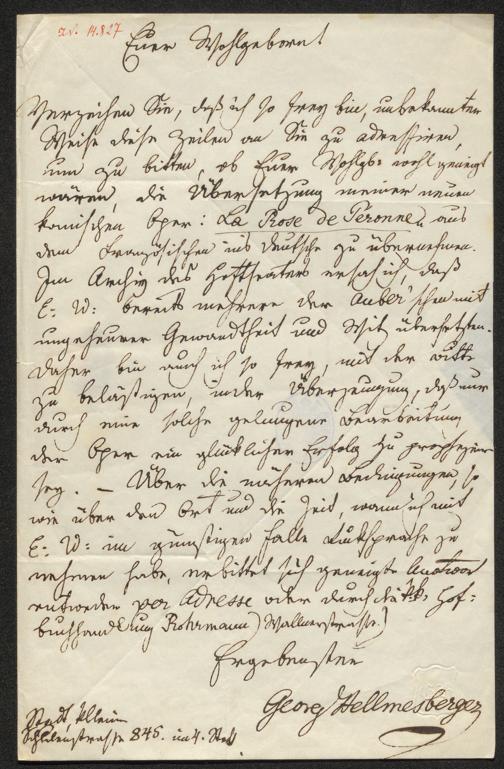 I.N. 14.827
Euer Wohlgeborn!
Verzeihen Sie, daß ich so frey bin, unbekannter
Weise diese Zeilen an Sie zu adressiren,
um zu bitten, ob Euer Wohlgb: wohl geneigt
wären, die Übersetzung meiner neuen
komischen Oper: La Rose de Peronne, aus
dem Französischen ins Deutsche zu übernehmen.
Im Archiv des Hoftheaters ersah ich, daß
E: W: bereits mehrere der Auber'schen mit
ungeheurer Gewandtheit und Witz übersetzten.
Daher bin auch ich so frey, mit der Bitte
zu belästigen, in der Überzeugung, daß nur
durch eine solche gelungene Bearbeitung
der Oper ein glücklicher Erfolg zu prophezeien
sey. – Über die näheren Bedingungen, so
wie über den Ort und die Zeit, wann ich mit
E: W: im günstigen Falle Rücksprache zu
nehmen habe, erbittet sich geneigte Antwort
entweder per Adresse oder durch die k.k. Hof:
buchhandlung Rohrmann (Wallnerstrasse)
Ergebenster
Georg Hellmesberger
Stadt,
845. im 4. Stock